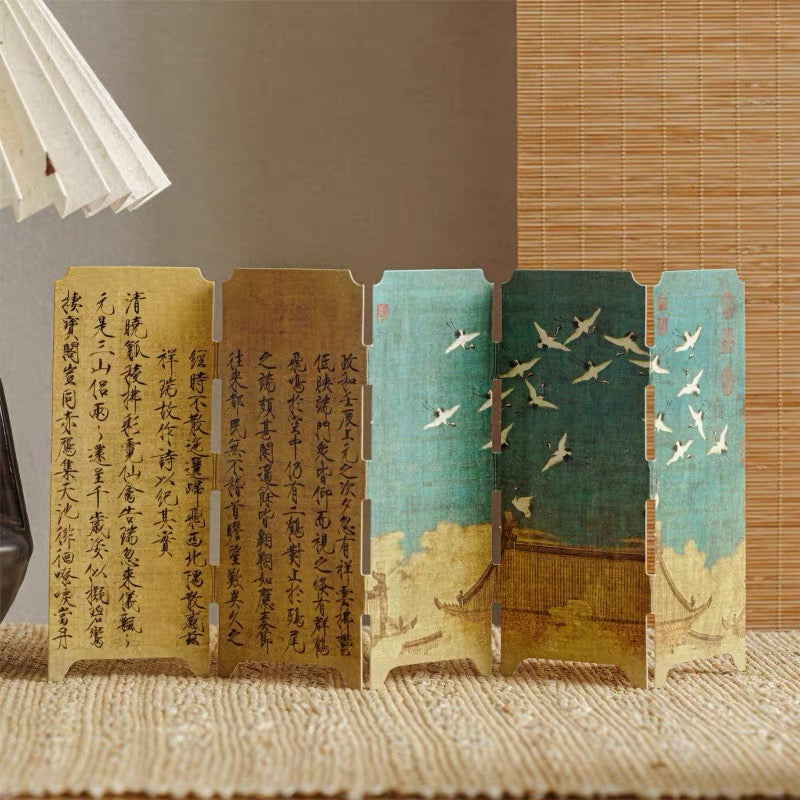 政和壬辰上元之次夕忽有祥雲拂鬱
低映端門衆皆仰而視之倏有群鶴
飛鳴於空中仍有二鶴對止於鴟尾
之端頗甚閒適餘皆翱翔如應奏節
往來都民無不稽首瞻望歎異久之
經時不散迤邐歸飛西北隅散感茲
祥瑞故作詩以紀其實
清曉觚稜拂彩霓仙禽告瑞忽來儀飄々
元是三山侶兩々還呈千歲姿似擬碧鸞
棲寶閣豈同赤鴈集天池徘徊嘹唳當丹